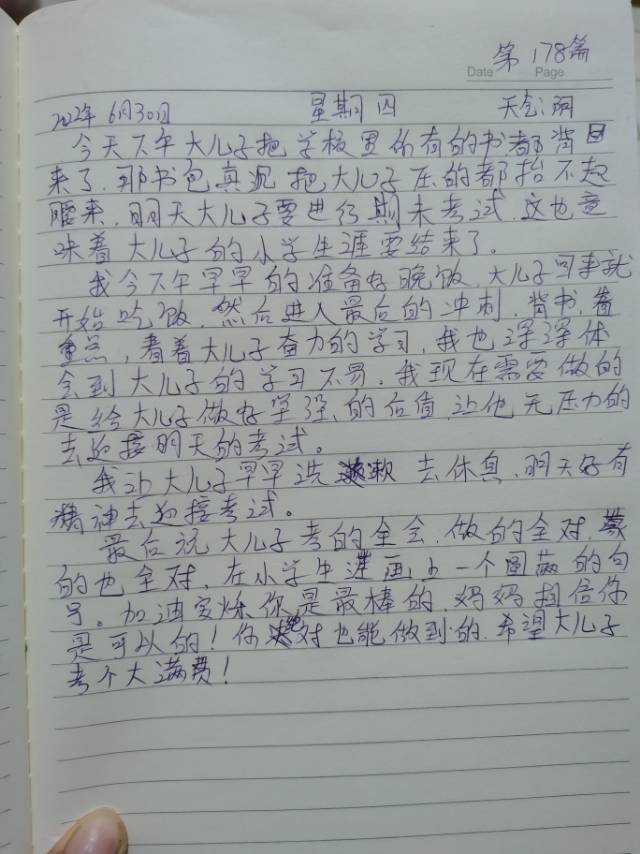 第178篇
Date Page
2022年6月30日 星期四 天气:阴
今天下午大儿子把学校里所有的书都背回
来了,那书包真沉,把大儿子压的都抬不起
腰来,明天大儿子要进行期末考试,这也意
味着大儿子的小学生涯要结束了。
我今下午早早的准备好晚饭,大儿子回来就
开始吃饭,然后进入最后的冲刺,背书,看
重点,看着大儿子奋力的学习,我也深深体
会到大儿子的学习不易,我现在需要做的
是给大儿子做好坚强的后盾,让他无压力的
去迎接明天的考试。
我让大儿子早早洗漱去休息,明天好有
精神去迎接考试。
最后祝大儿子考的全会,做的全对,蒙
的也全对,在小学生涯画上一个圆满的句
号。加油宝烁你是最棒的,妈妈相信你
是可以的!你绝对也能做到的,希望大儿子
考个大满贯!